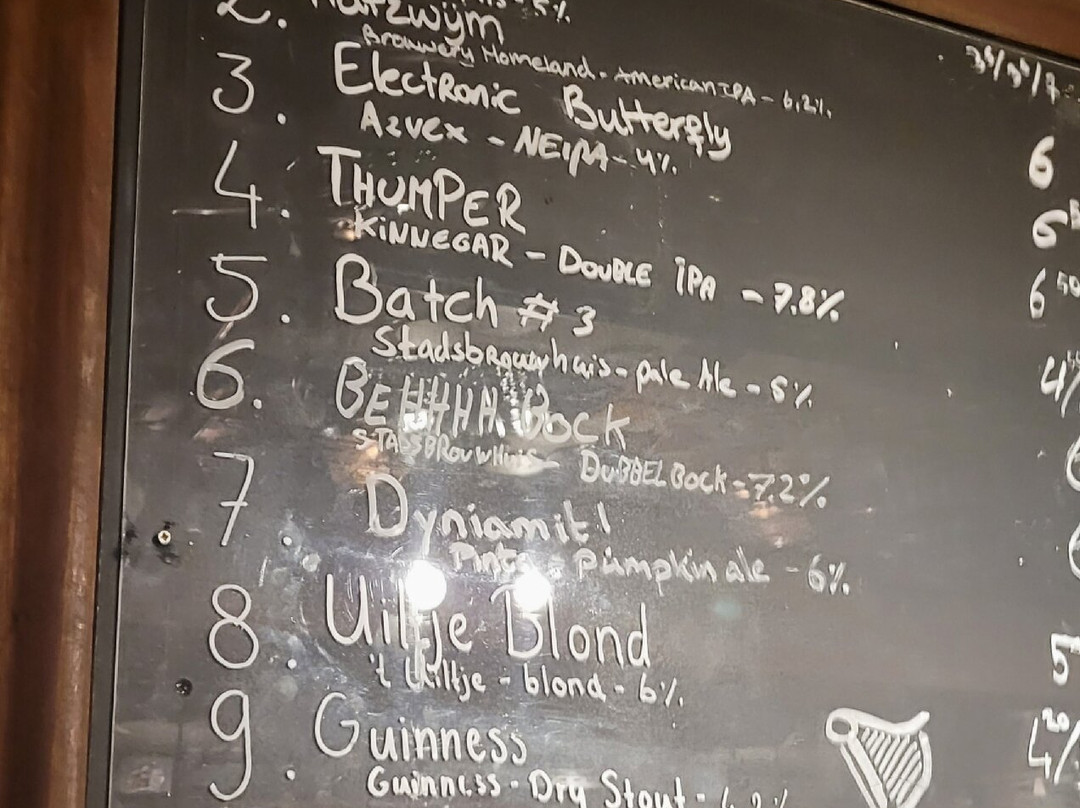 2.
Brouwery Homeland - American IPA - 6,2%
3. Electronic Butterfly 6
Azvex - NEIPA - 4%
4. THUMPER
KINNEGAR - DOUBLE IPA - 7.8%
5. Batch # 3
Stadsbrouwhuis - pale Ale - 5%
6. BEHHHH BOCK
STADSBROUWHUIS - DUBBEL BOCK - 7.2%
7. Dyniamit!
Pinta - pumpkin ale - 6%
8. Uiltje Blond
't Uiltje - blond - 6%
9. Guinness
Guinness - Dry Stout -